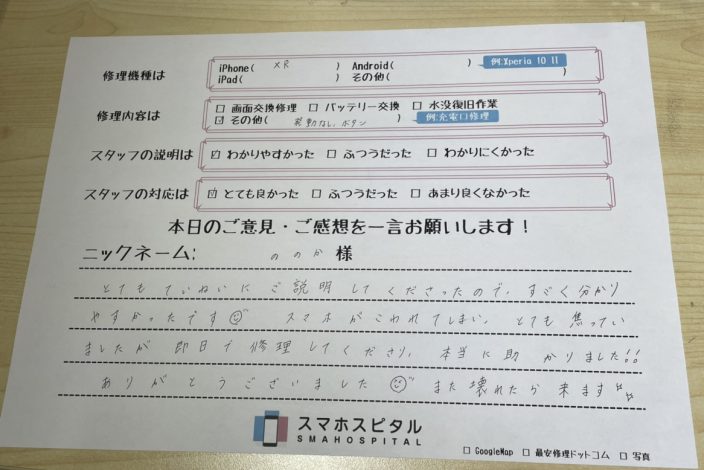 修理機種は
iPhone( XR ) Android( ) 例:Xperia 10 11
iPad( ) その他( )
修理内容は
☐ 画面交換修理 ☐ バッテリー交換 ☐ 水没復旧作業
☑ その他( 起動なし、ボタン ) 例:充電口修理
スタッフの説明は ☑ わかりやすかった ☐ ふつうだった ☐ わかりにくかった
スタッフの対応は ☑ とても良かった ☐ ふつうだった ☐ あまり良くなかった
本日のご意見・ご感想を一言お願いします！
ニックネーム: ののか 様
とてもていねいにご説明してくださったので、すごく分かり
やすかったです☺ スマホがこわれてしまい、とても焦ってい
ましたが即日で修理してくださり、本当に助かりました!!
ありがとうございました☺ また壊れたら来ます
スマホスピタル
SMAHOSPITAL
☐ GoogleMap ☐ 最安修理ドットコム ☐ 写真